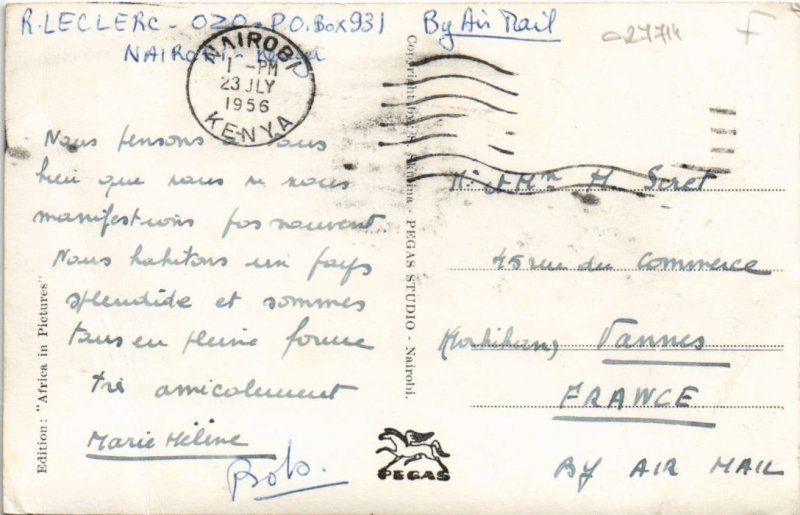 R. LECLERC - OZO - P.O. Box 931
NAIROBI - Kenya
By Air Mail
27714
F
NAIROBI
1 - PM
23 JLY
1956
KENYA
Nous pensons à vous
bien que nous ne nous
manifestions pas souvent.
Nous habitons un pays
splendide et sommes
tous en pleine forme
très amicalement
Marie Hélène
Bob.
Edition: "Africa in Pictures"
Copyright by S. Skulina - PEGAS STUDIO - Nairobi.
PEGAS
Mr et Mme M. Siret
45 rue du Commerce
(Morbihan) Vannes
FRANCE
By AIR MAIL